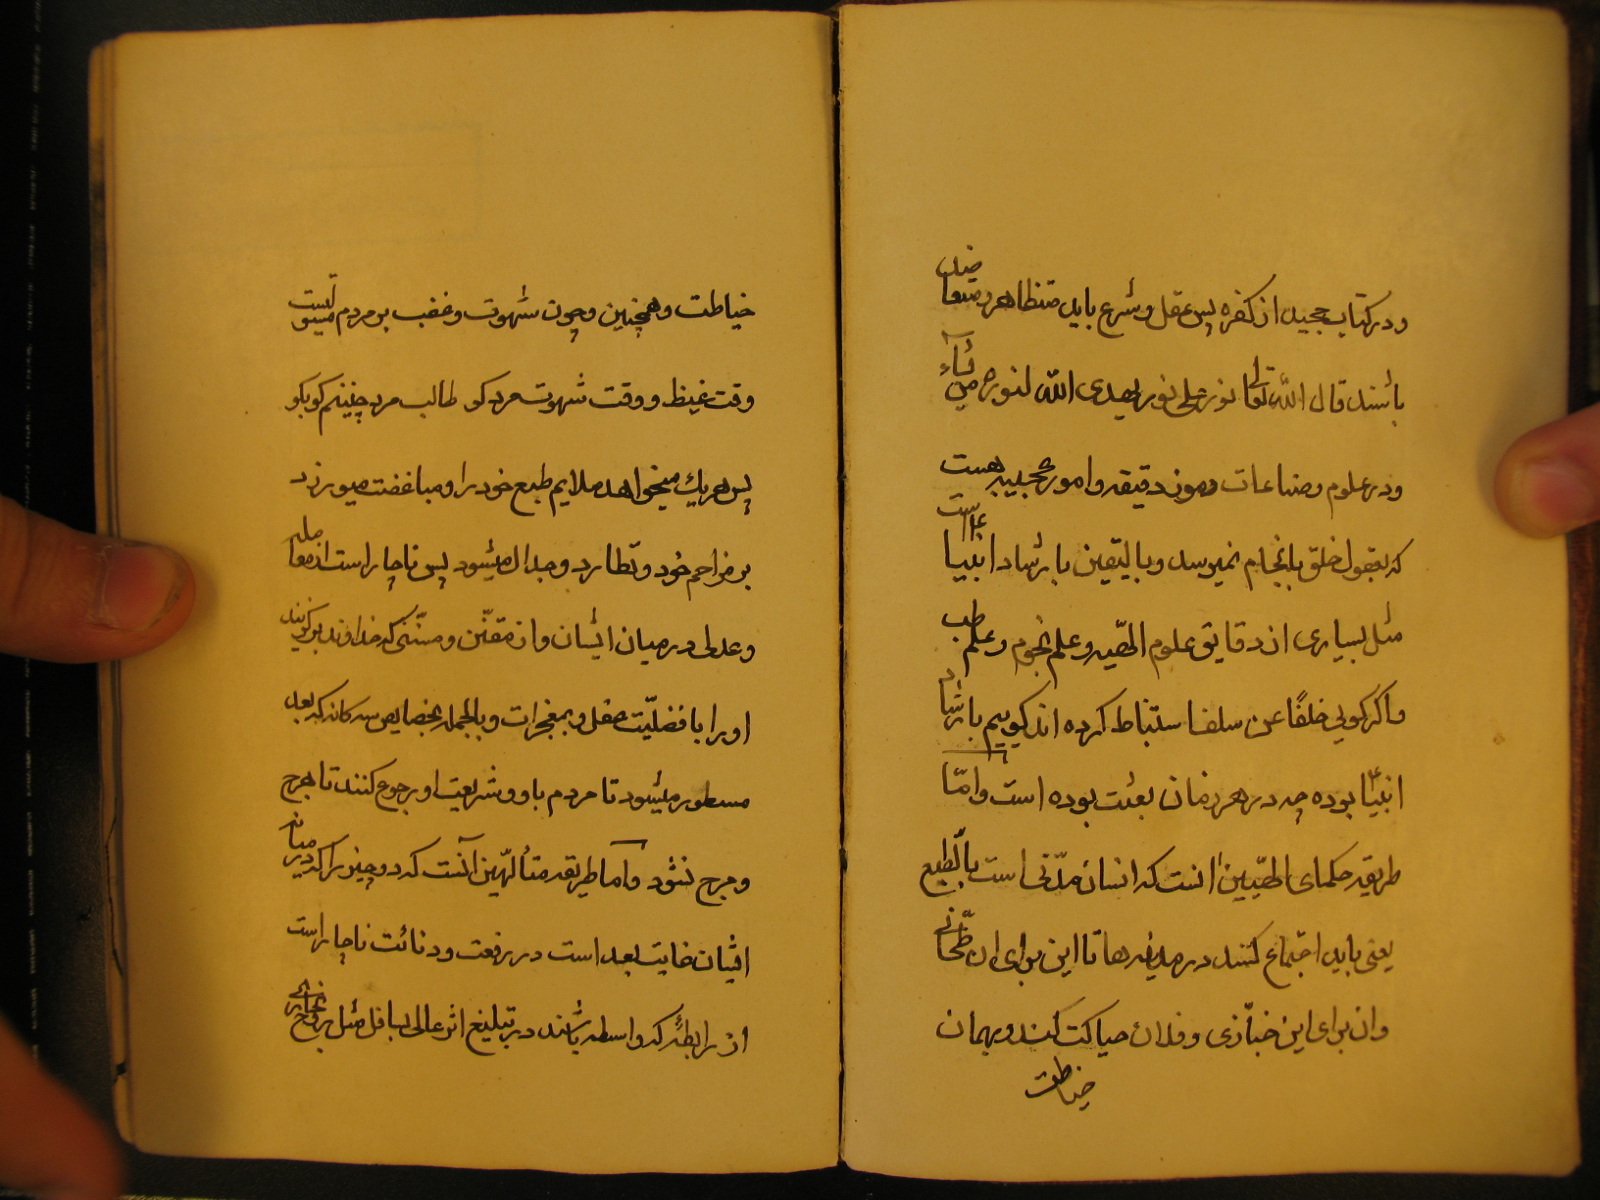 و در کتاب مجید از کفره پس عقل و شرع باید متظاهر و متعاضد
باشند قال الله تعالی نور علی نور یهدی الله لنوره من یشاء
و در علوم و صناعات رموز دقیقه و امور عجیبه هست
که بعقول خلق بانجام نمیرسد و بالیقین بارشاد انبیاست
مثل بسیاری از دقایق علوم الهیه و علم نجوم و علم طب
و اگر گوئی خلفا عن سلف استنباط کرده اند گوییم بارشاد
انبیا بوده چه در هر زمان بعثت بوده است و امّا
طریقه حکمای الهیین آنست که انسان مدنی است بالطبع
یعنی باید اجتماع کنند در مدینه ها تا این برای آن طحّانی
و آن برای این خبّازی و فلان حیاکت کند و بهمان
خیاطت
خیاطت و همچنین و چون شهوت و غضب بر مردم مستولیست
وقت غیظ و وقت شهوت مرد کو طالب مرد چنینم کو بکو
پس هریک میخواهد ملایم طبع خود را و مباغضت میورزد
بر مزاحم خود و تطارد و جدال میشود پس ناچار است از معامله
و عدلی در میان ایشان و از مقنّن و مسنّنی که خداوند برگزیند
او را بافضلیّت عقل و بمعجزات و بالجمله بخصایص سه گانه که بعد
مسطور میشود تا مردم باو و شریعت او رجوع کنند تا هرج
و مرج نشود و امّا طریقه متألهین آنست که دو چیز را که در میانه
ایشان غایت بعد است در رفعت و دنائت ناچار است
از رابطهٔ که واسطه باشند در تبلیغ اثر عالی بسافل مثل روح بخاری